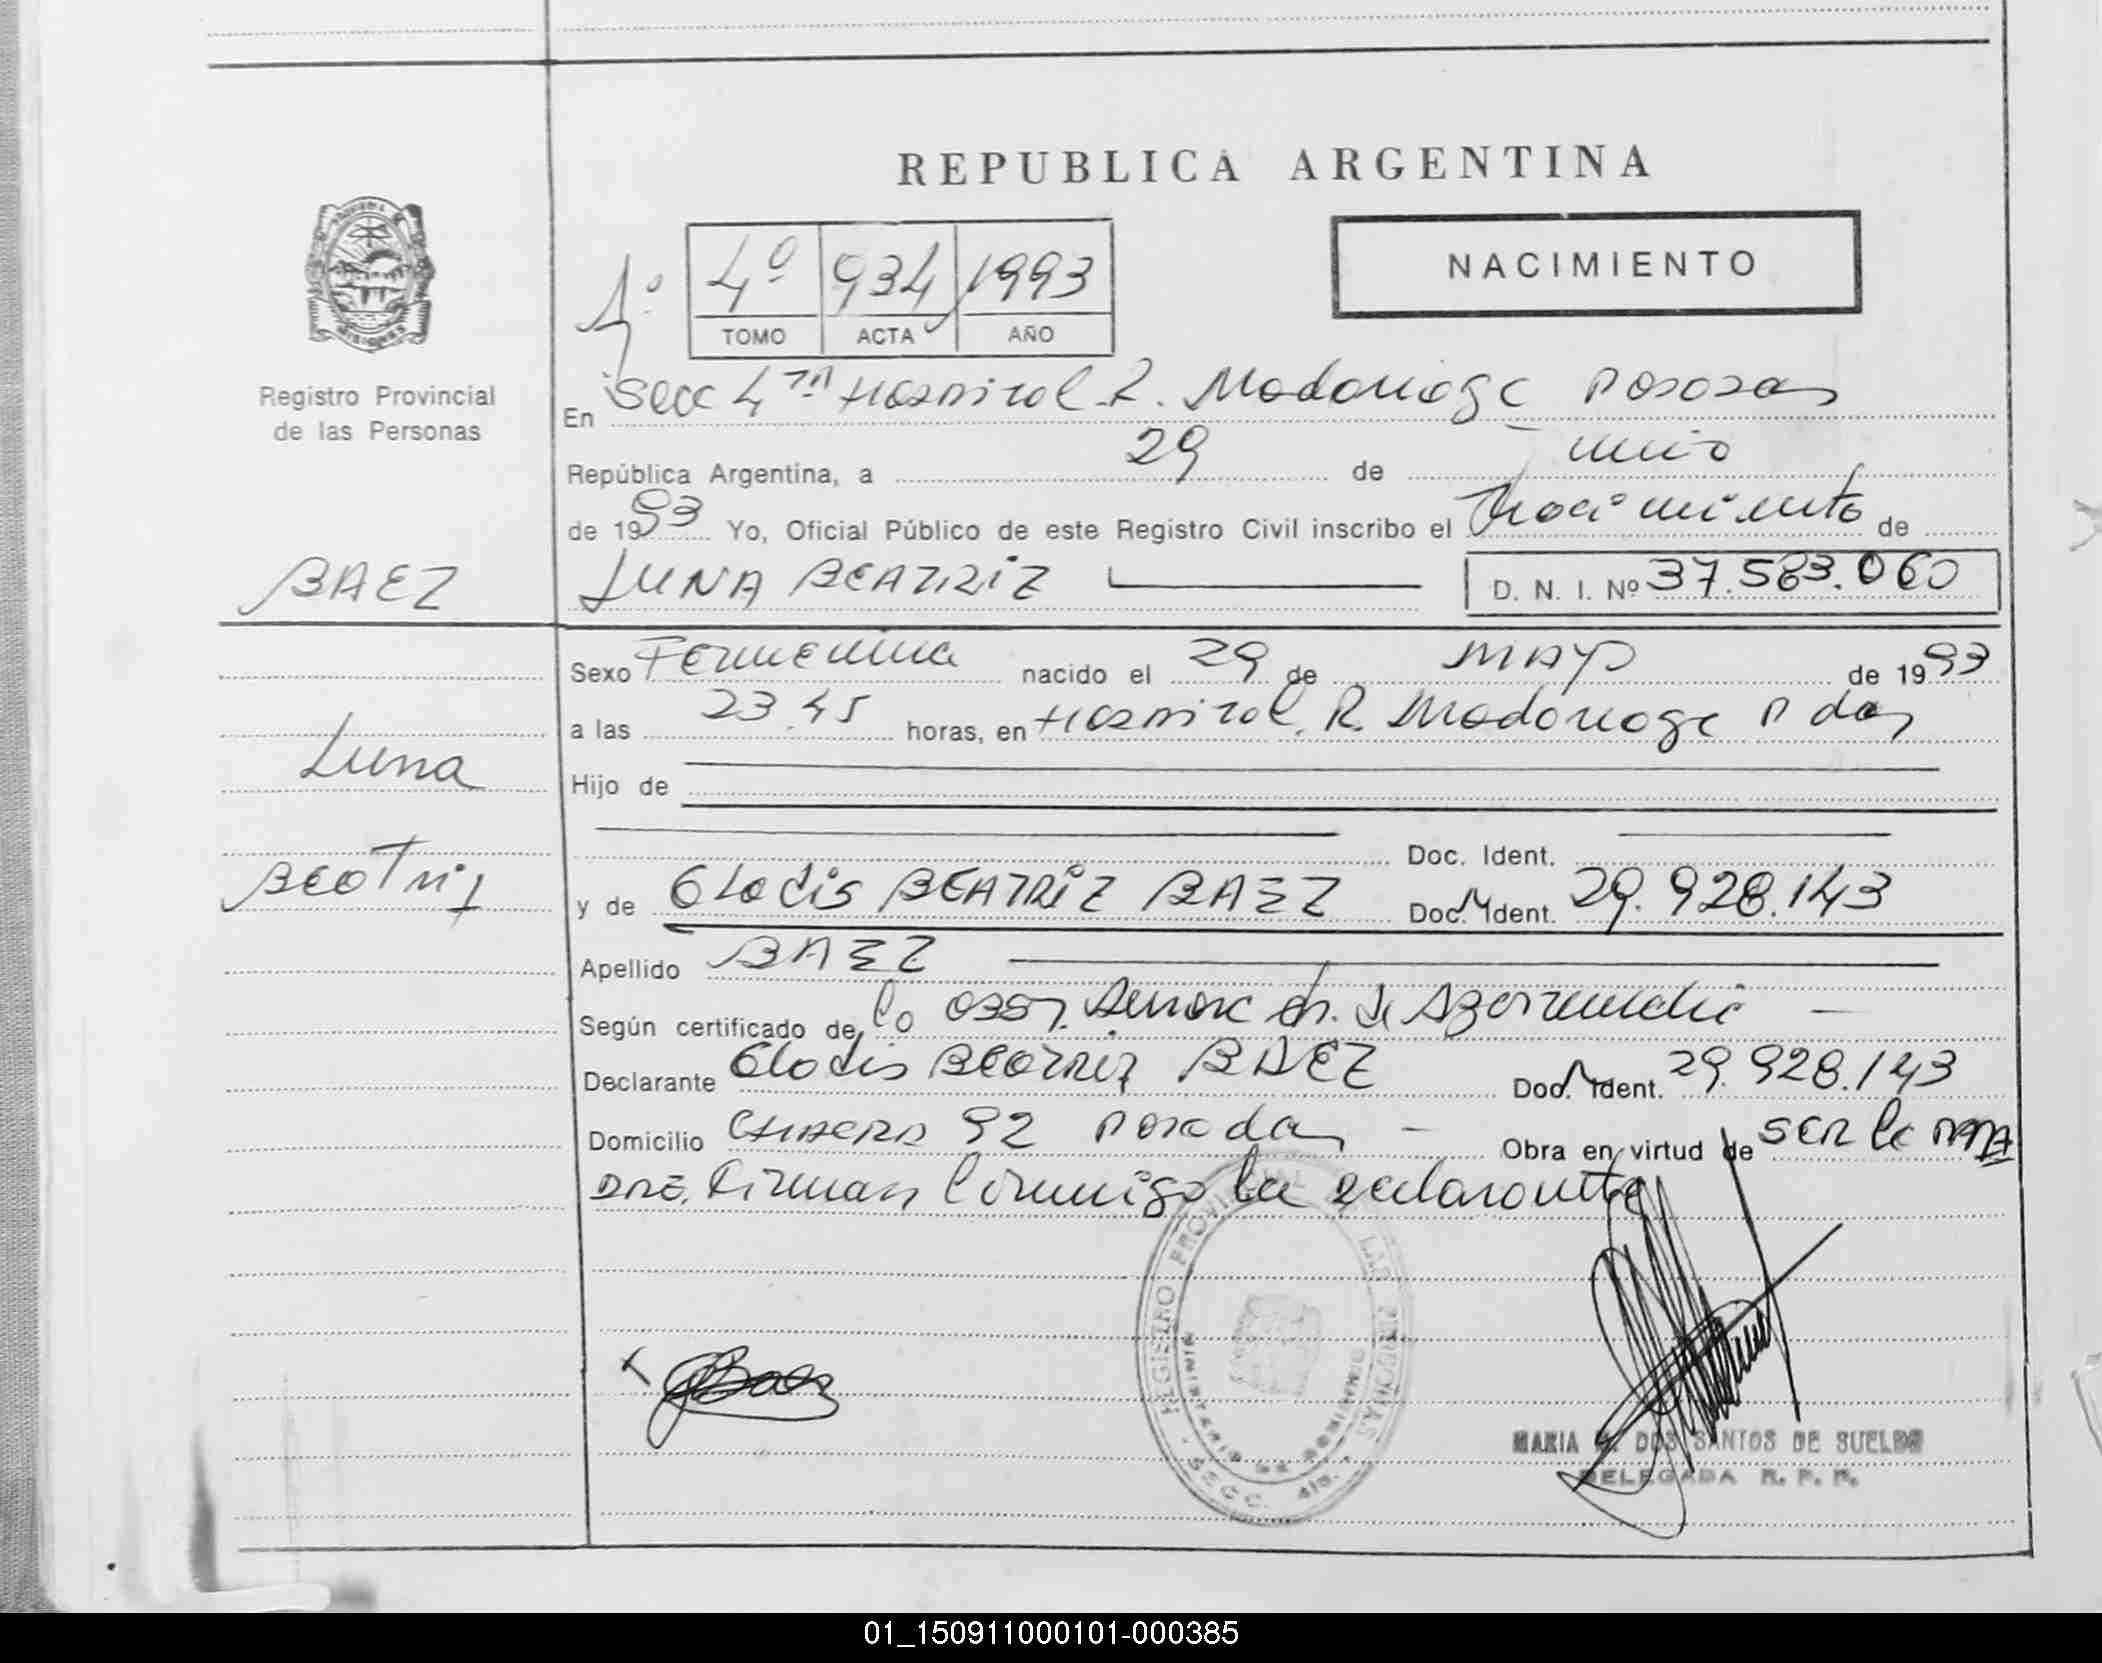 REPUBLICA ARGENTINA
NACIMIENTO
1º 4º 934 1993
TOMO ACTA AÑO
Registro Provincial
de las Personas
En secc 4ta Hospital R. Madariaga Posadas
República Argentina, a 29 de Junio
de 1993 Yo, Oficial Público de este Registro Civil inscribo el Nacimiento de
BAEZ
LUNA BEATRIZ D. N. I. Nº 37.583.060
Sexo Femenina nacido el 29 de MAYO de 1993
a las 23.45 horas, en Hospital R. Madariaga Pdas
Luna
Hijo de
Doc. Ident.
Beatriz
y de Gladis BEATRIZ BAEZ Doc. Ident. 29.928.143
Apellido BAEZ
Según certificado de la
Declarante Gladis Beatriz BAEZ Doc. Ident. 29.928.143
Domicilio 92 Posadas - Obra en virtud de ser la
Firman conmigo la declarante
Baez
REGISTRO PROVINCIAL DE LAS PERSONAS
MINISTERIO DE GOBIERNO
SECC. 4ta.
MARIA DOS SANTOS DE SUELDO
DELEGADA R. P. P.
01_150911000101-000385